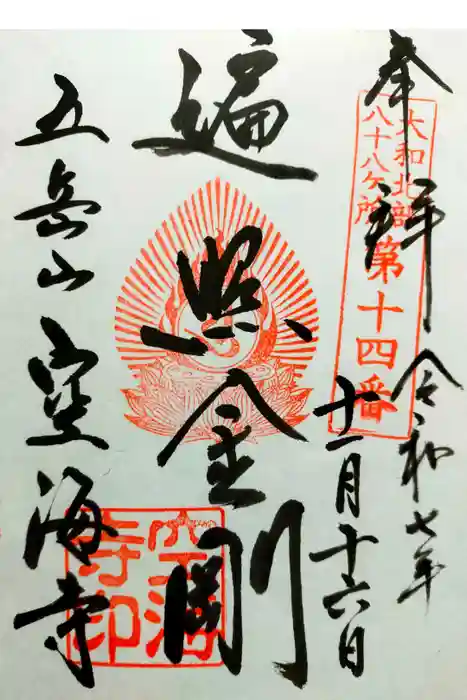 奉拝
令和七年
十一月十六日
大和北部
八十八ヶ所
第十四番
遍照金剛
五岳山 空海寺
空海
寺印